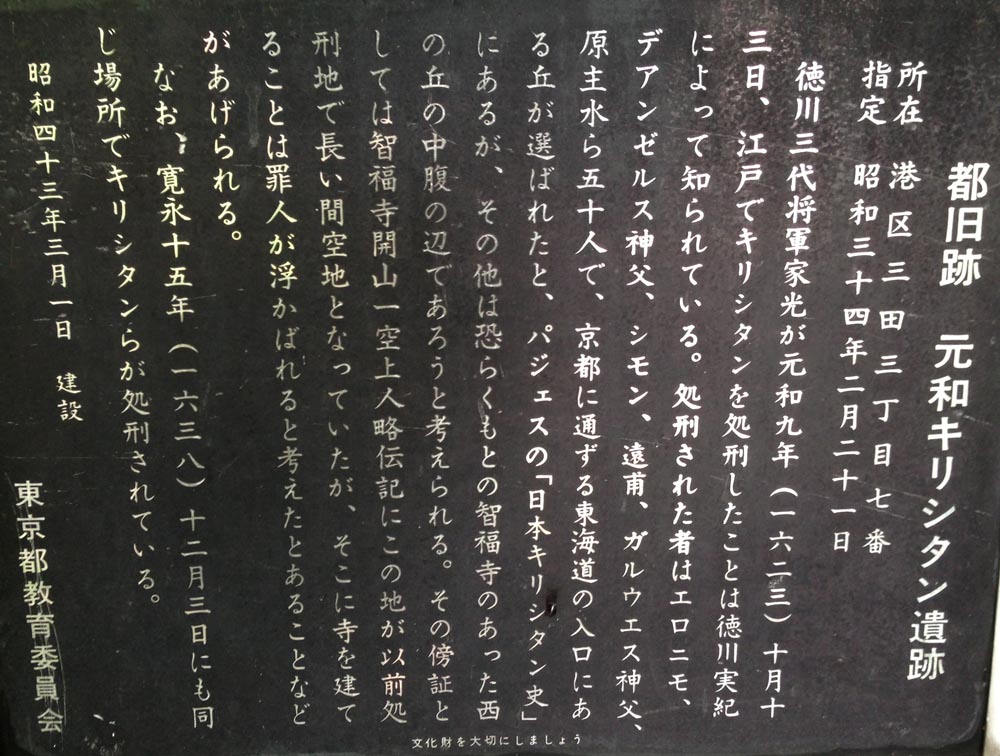 都旧跡　元和キリシタン遺跡
所在　港区三田三丁目七番
指定　昭和三十四年二月二十一日
徳川三代将軍家光が元和九年（一六二三）十月十
三日、江戸でキリシタンを処刑したことは徳川実紀
によって知られている。処刑された者はエロニモ、
デアンゼルス神父、シモン、遠甫、ガルウエス神父、
原主水ら五十人で、京都に通ずる東海道の入口にあ
る丘が選ばれたと、パジェスの「日本キリシタン史」
にあるが、その他は恐らくもとの智福寺のあった西
の丘の中腹の辺であろうと考えられる。その傍証と
しては智福寺開山一空上人略伝記にこの地が以前処
刑地で長い間空地となっていたが、そこに寺を建て
ることは罪人が浮かばれると考えたとあることなど
があげられる。
なお、寛永十五年（一六三八）十二月三日にも同
じ場所でキリシタンらが処刑されている。
昭和四十三年三月一日　建設
東京都教育委員会
文化財を大切にしましょう